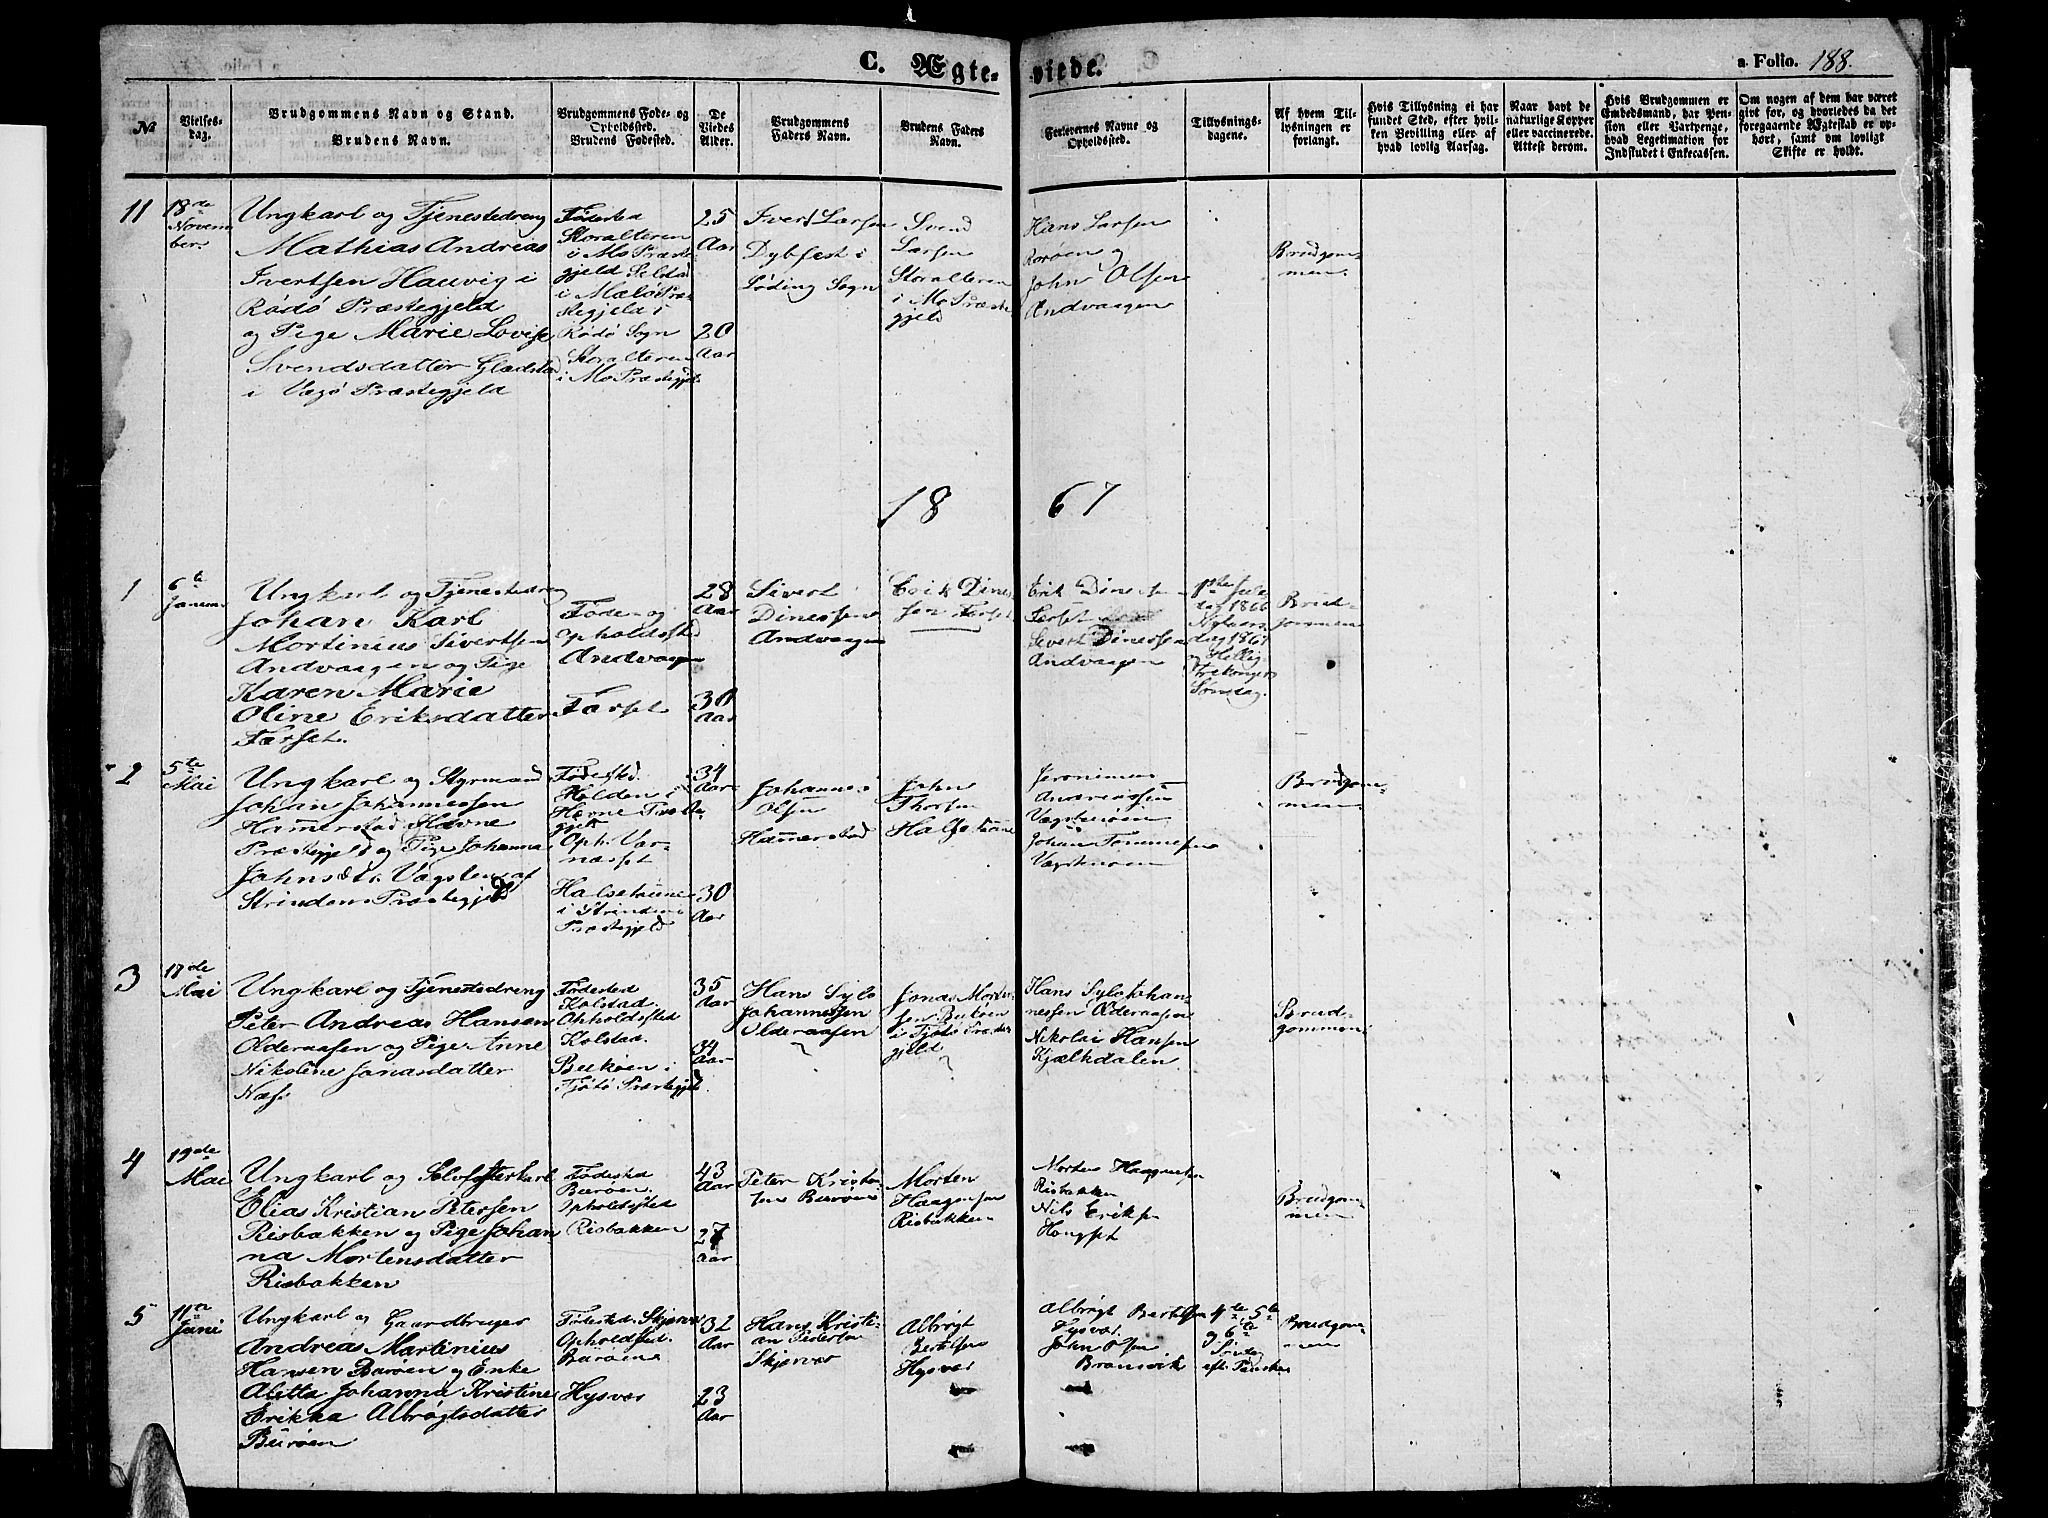 C. Ægte-
viede.
a Folio. 188.
№
Vielses-
dag.
Brudgommens Navn og Stand.
Brudens Navn.
Brudgommens Føde- og
Opholdssted.
Brudens Fødested.
De
Viedes
Alder.
Brudgommens
Faders Navn.
Brudens Faders
Navn.
Forlovernes Navne og
Opholdssted.
Tillysnings-
dagene.
Af hvem Til-
lysningen er
forlangt.
Hvis Tillysning ei har
fundet Sted, efter hvil-
ken Bevilling eller af
hvad lovlig Aarsag.
Naar havt de
naturlige Kopper
eller vaccinerede.
Attest derom.
Hvis Brudgommen er
Embedsmand, har Pen-
sion eller Vartpenge,
hvad Legetimation for
Indskudet i Enkecassen.
Om nogen af dem har været
givt for, og hvorledes da det
foregaaende Ægteskab er op-
hørt, samt om lovligt
Skifte er holdt.
11
18de
Novem
ber.
Ungkarl og Tjenestedreng
Mathias Andreas
Ivertsen Hauvig i
Rødø Præstegjeld
og Pige Marie Lovise
Svendsdatter Gladstad
i Vegø Præstegjeld
Fødested
Storalteren
i Mo Præste
gjeld
i
stegjeld i
Rødø Sogn
Storalteren
i Mo Præstegjeld
25
Aar
20
Aar
Ivert Larsen
Dybfest i
Løding Sogn
Svend
Larsen
Storalteren
i Mo Præste
gjeld
Hans Larsen
Rorøen og
John Olsen
Andvaagen
Brudgom-
men
18 67
1
6te
Januar
Ungkarl og Tjenestedreng
Johan Karl
Mortinius Sivertsen
Andvaagen og Pige
Karen Marie
Oline Eriksdatter
Færset.
Føde- og
Opholdssted
Andvaagen
Færset
28
Aar
30
Aar
Sivert
Dinessen
Andvaagen
Erik Dines-
sen Færset
Erik Dinessen
Færset
Sivert Dinessen
Andvaagen
1ste Jule
dag 1866
Nytaars
dag 1867
og Hellig-
trekongers
Søndag.
Brud-
gommen
2
5te
Mai
Ungkarl og Styrmand
Johan Johannessen
Hammerstad Hevne
Præstegjeld og Pige Johanna
Johnsdtr. Vægsten af
Strinden Præstegjeld
Fødested.
Holden i
Hevne Præste
gjeld
Oph. Vær-
næsset
Halsetaune
i Strinden
Præstegjeld
34
Aar
30
Aar
Johannes
Olsen
Hammerstad
John
Thorsen
Halsetaune
Jeronimus
Andreassen
Vægstenøen
Johan Tommesen
Vægstenøen
Brudgom-
men
3
17de
Mai
Ungkarl og Tjenestedreng
Peter Andreas Hansen
Olderaasen og Pige Anne
Nikoline Jonasdatter
Næss
Fødested
Kolstad.
Opholdssted
Kolstad.
Bukøen i
Tjøtø Præstegjeld
35
Aar
34
Aar
Hans Sylo
Johannessen
Olderaasen
Jonas Morten-
sen Bukøen
i Tjøtø Præste
gjeld
Hans Sylo Johan-
nessen Olderaasen
Nikolai Hansen
Kjælkdalen
Brud-
gommen
4
19de
Mai
Ungkarl og Selvfosterkarl
Elias Kristian Petersen
Risbakken og Pige Johan
na Mortensdatter
Risbakken
Fødested
Burøen.
Opholdssted
Risbakken
43
Aar
27
Aar
Peter Kristen-
sen Burøen
Morten
Haagensen
Risbakken
Morten Haagensen
Risbakken
Nils Eriksen
Hongset
Brudgom-
men
5
11te
Juni
Ungkarl og Gaardbruger
Andreas Martinius
Hansen Burøen og Enke
Aletta Johanna Kristine
Erikka Albrøgtsdatter
Burøen
Fødested. Skjærvær
Opholdssted.
Burøen
Hysvær
32
Aar
23
Aar
Hans Kristi-
an Petersen
Skjærvær
Albrøgt
Bertelsen
Hysvær
Albrøgt Bertelsen
Hysvær.
John Olsen
Bremsvik
4te, 5te
og 6te
Søndag
efter Paaske
Brudgom-
men